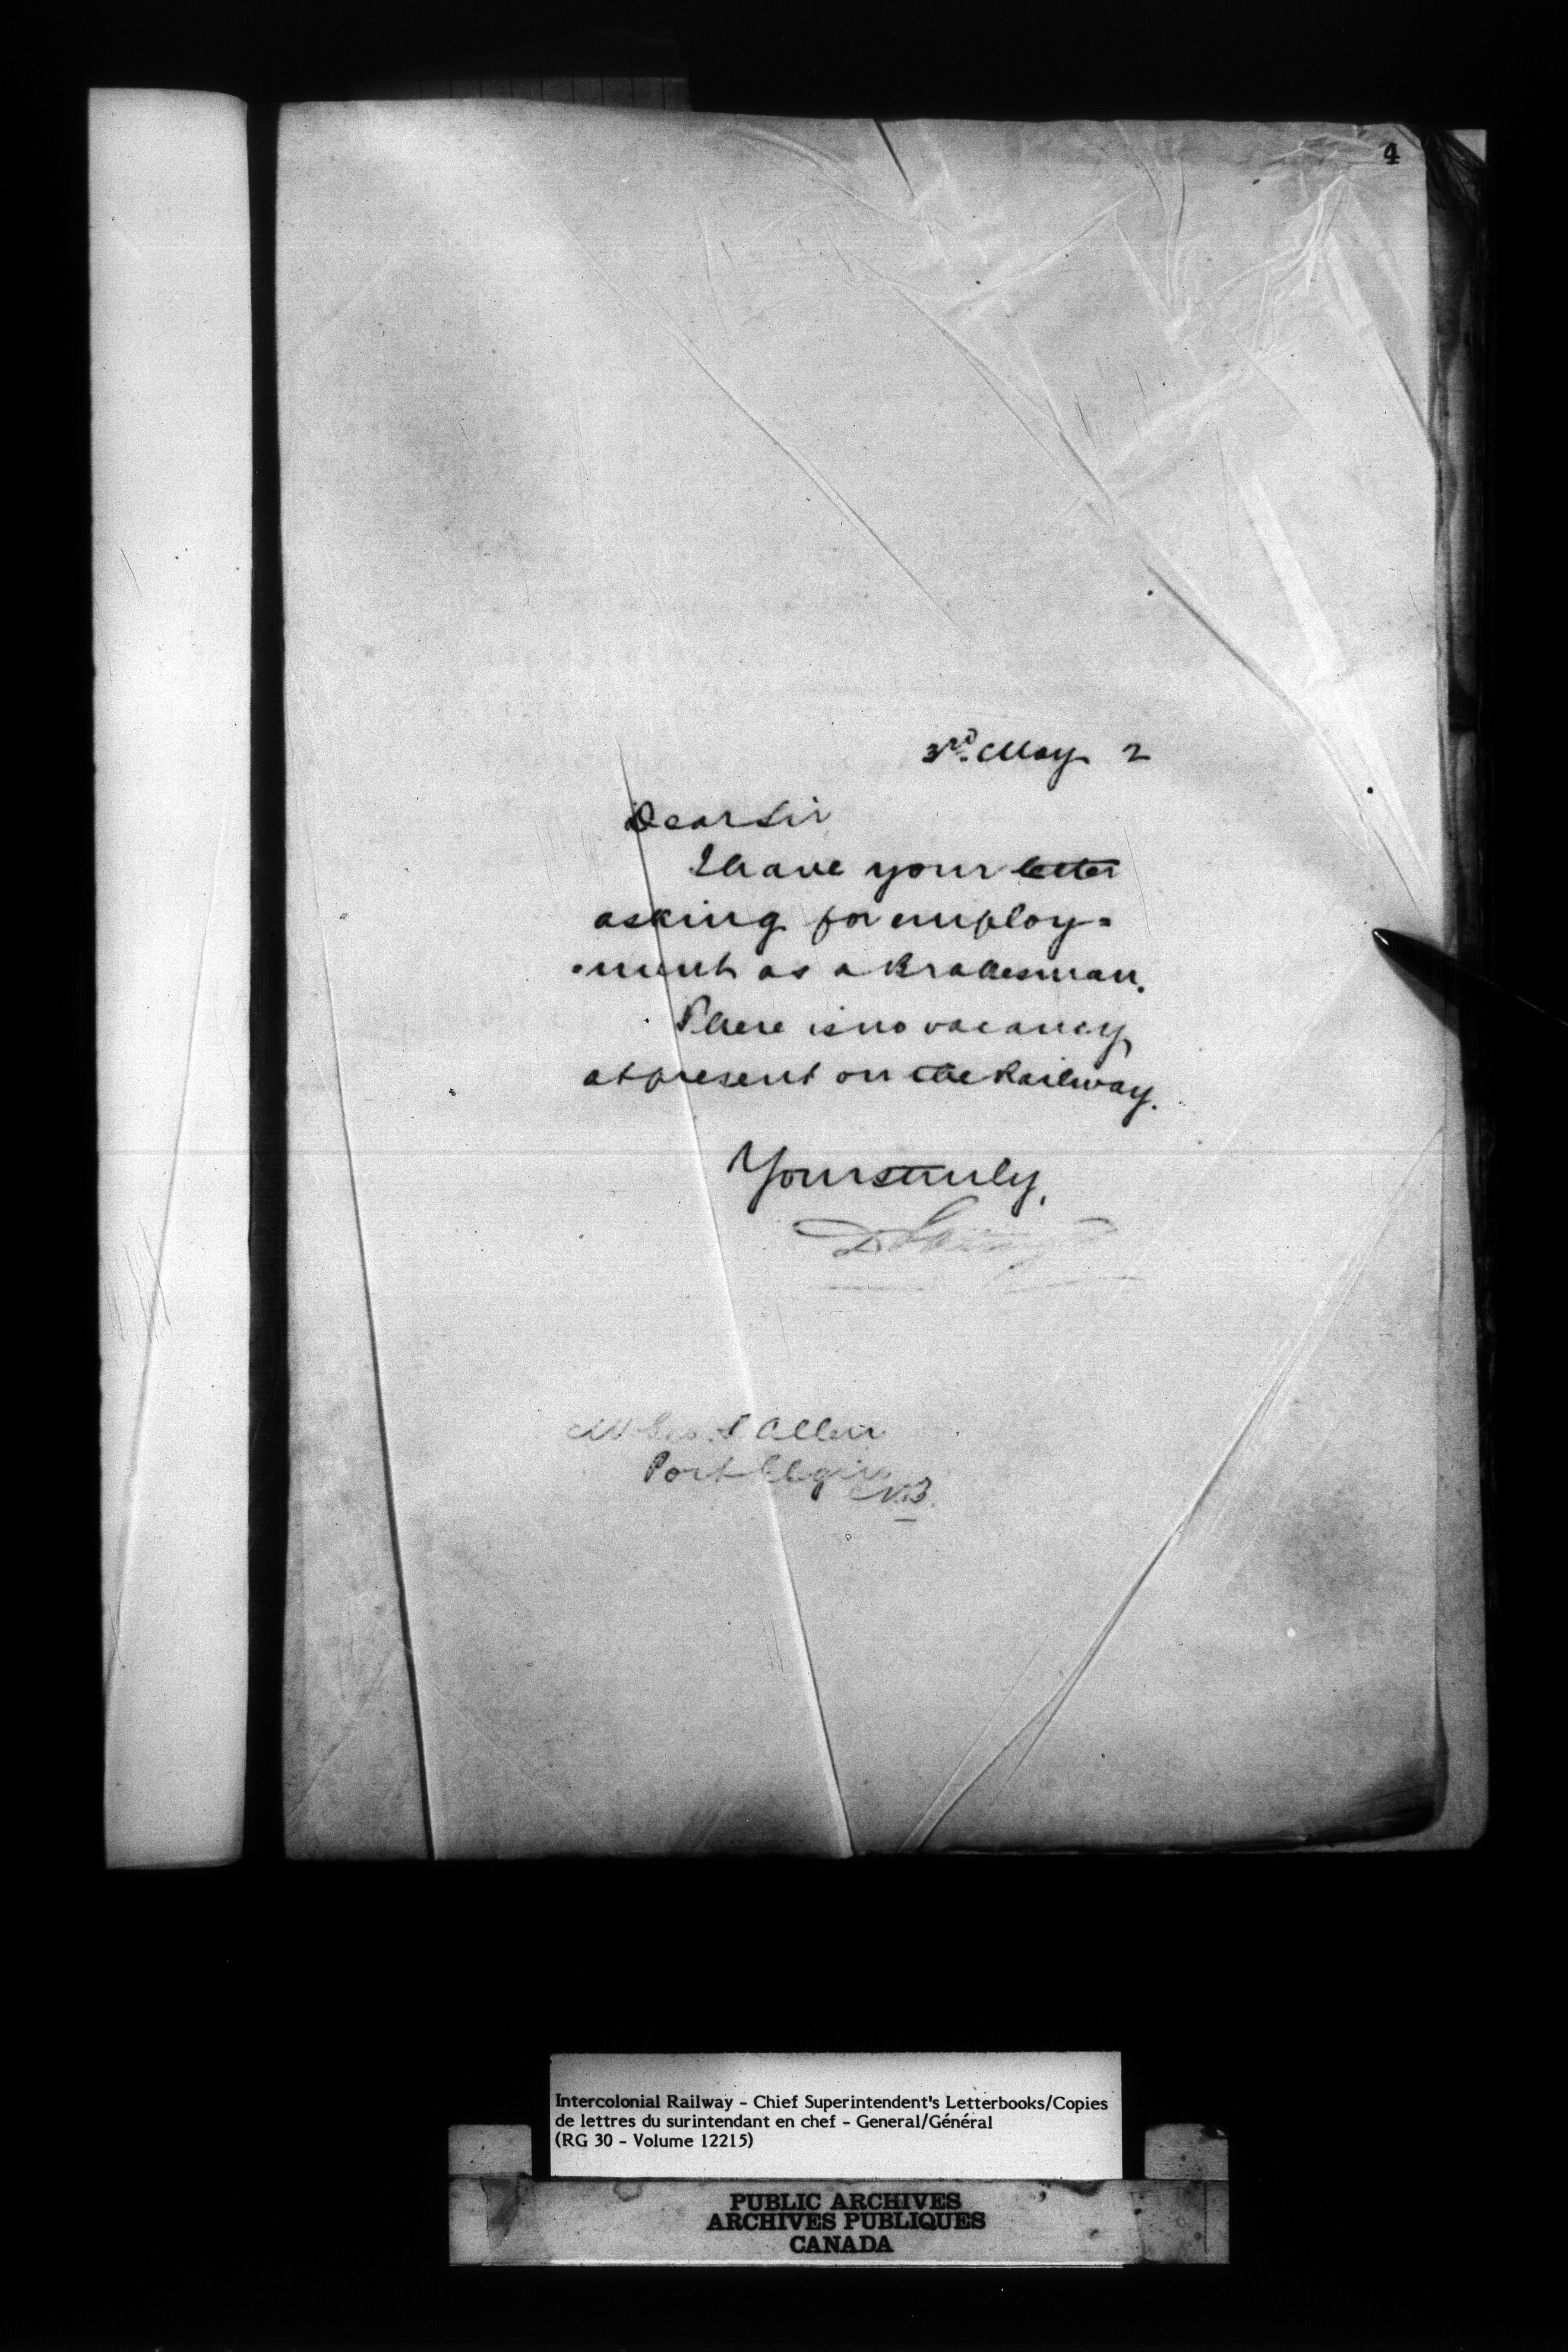 4
3rd. May 2
Dear Sir
I have your letter
asking for employ=
=ment as a Brakesman.
There is no vacancy
at present on the Railway.
Yours truly,
Mr Geo. S Allen
Port Elgin
N.B.
Intercolonial Railway - Chief Superintendent's Letterbooks/Copies
de lettres du surintendant en chef - General/Général
(RG 30 - Volume 12215)
PUBLIC ARCHIVES
ARCHIVES PUBLIQUES
CANADA